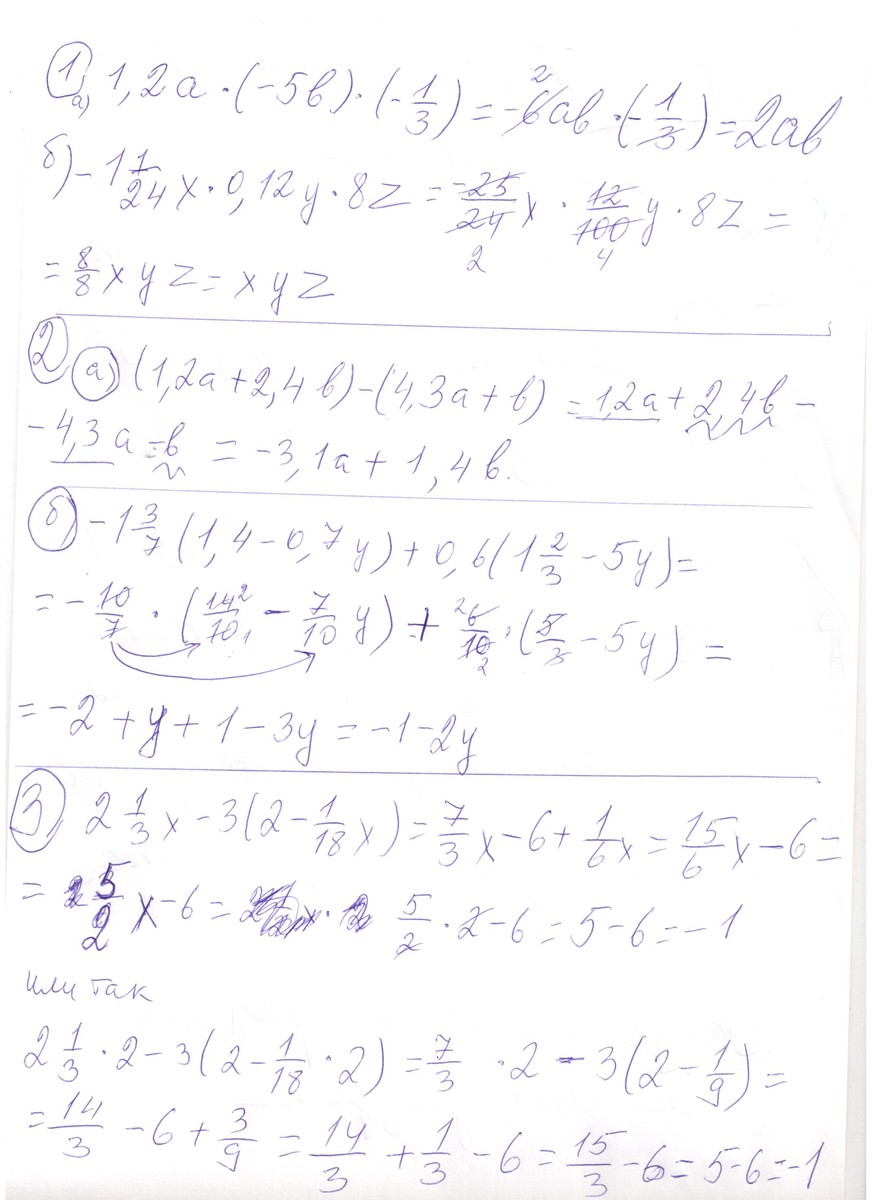 1 а) 1,2a · (-5b) · (-1/3) = -6ab · (-1/3) = 2ab
б) -1 1/24 x · 0,12y · 8z = -25/24 x · 12/100 y · 8z =
= 8/8 x y z = x y z
2 а) (1,2a + 2,4b) - (4,3a + b) = 1,2a + 2,4b -
- 4,3a - b = -3,1a + 1,4b.
б) -1 3/7 (1,4 - 0,7y) + 0,6(1 2/3 - 5y) =
= -10/7 · (14/10 - 7/10 y) + 6/10 · (5/3 - 5y) =
= -2 + y + 1 - 3y = -1 - 2y
3 2 1/3 x - 3(2 - 1/18 x) = 7/3 x - 6 + 1/6 x = 15/6 x - 6 =
= 5/2 x - 6 = 5/2 · 2 - 6 = 5 - 6 = -1
или так
2 1/3 · 2 - 3(2 - 1/18 · 2) = 7/3 · 2 - 3(2 - 1/9) =
= 14/3 - 6 + 3/9 = 14/3 + 1/3 - 6 = 15/3 - 6 = 5-6 = -1